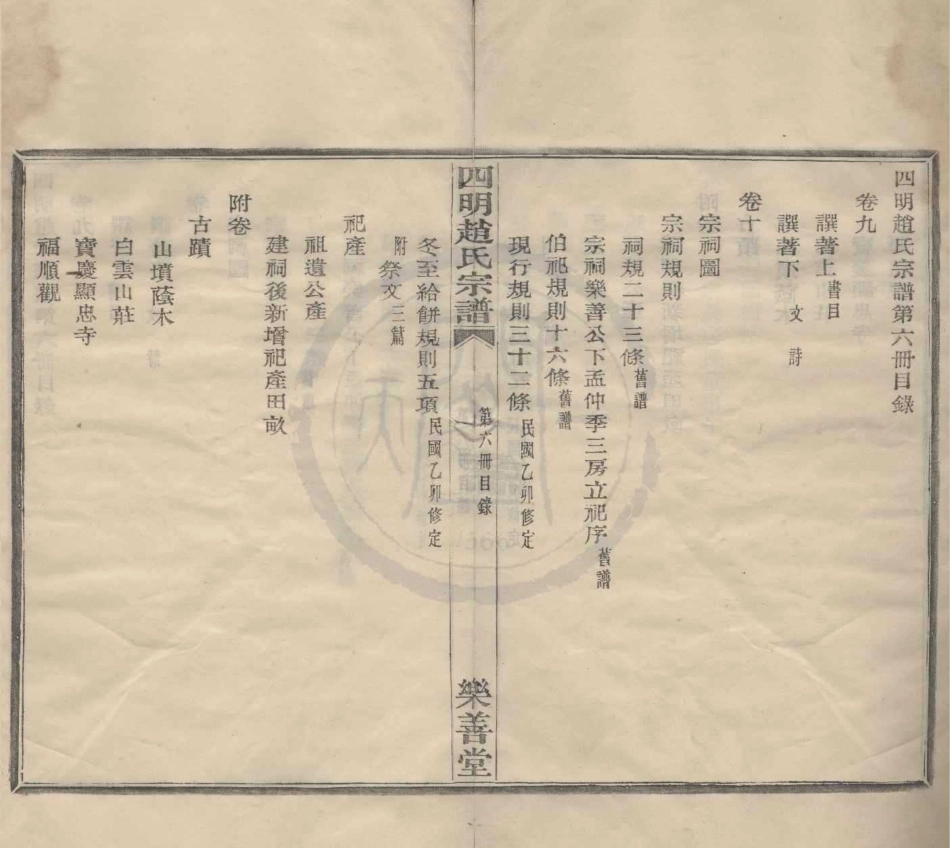 四明趙氏宗譜第六冊目錄
卷九
譔著上 書目
譔著下 文 詩
卷十
宗祠圖
宗祠規則
祠規二十三條 舊譜
宗祠樂善公下孟仲季三房立祀序 舊譜
伯祀規則十六條 舊譜
現行規則三十二條 民國乙卯修定
四明趙氏宗譜 第六冊目錄 樂善堂
冬至給餅規則五項 民國乙卯修定
附祭文 三篇
祀產
祖遺公產
建祠後新增祀產田畝
附卷
古蹟
山墳蔭木
白雲山莊
寶慶顯忠寺
福順觀